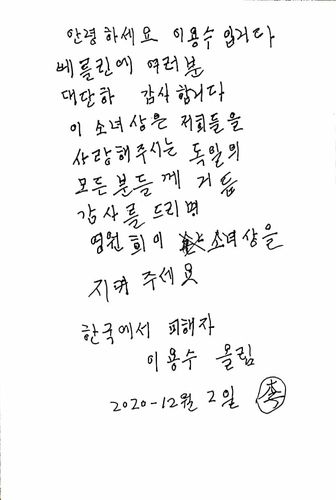 안령하세요 이용수입니다
베를린에 여러분
대단하 감사합니다
이 소녀상은 저희들을
사랑해주시는 독일의
모든분들께 거듭
감사를드리며
영원희이 소녀상을
지켜 주세요
한국에서 피해자
이용수 올림
2020-12월 2일 李